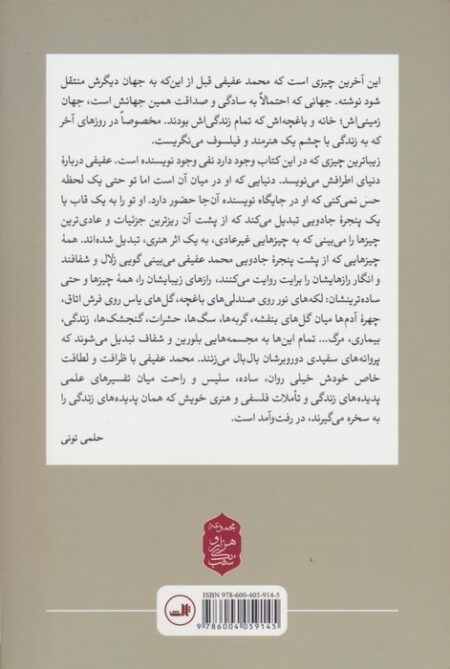 این آخرین چیزی است که محمد عفیفی قبل از این‌که به جهان دیگرش منتقل
شود نوشته. جهانی که احتمالاً به سادگی و صداقت همین جهانش است، جهان
زمینی‌اش؛ خانه و باغچه‌اش که تمام زندگی‌اش بودند. مخصوصاً در روزهای آخر
که به زندگی با چشم یک هنرمند و فیلسوف می‌نگریست.
زیباترین چیزی که در این کتاب وجود دارد نفی وجود نویسنده است. عفیفی دربارهٔ
دنیای اطرافش می‌نویسد. دنیایی که او در میان آن است اما تو حتی یک لحظه
حس نمی‌کنی که او در جایگاه نویسنده آن‌جا حضور دارد. او تو را به یک قاب یا
یک پنجرهٔ جادویی تبدیل می‌کند که از پشت آن ریزترین جزئیات و عادی‌ترین
چیزها را می‌بینی که به چیزهایی غیرعادی، به یک اثر هنری، تبدیل شده‌اند. همهٔ
چیزهایی که از پشت پنجرهٔ جادویی محمد عفیفی می‌بینی گویی زلال و شفافند
و انگار رازهایشان را برایت روایت می‌کنند، رازهای زیبایشان را، همهٔ چیزها و حتی
ساده‌ترینشان: لکه‌های نور روی صندلی‌های باغچه، گل‌های یاس روی فرش اتاق،
چهرهٔ آدم‌ها میان گل‌های بنفشه، گربه‌ها، سگ‌ها، حشرات، گنجشک‌ها، زندگی،
بیماری، مرگ... تمام این‌ها به مجسمه‌هایی بلورین و شفاف تبدیل می‌شوند که
پروانه‌های سفیدی دوروبرشان بال‌بال می‌زنند. محمد عفیفی با ظرافت و لطافت
خاص خودش خیلی روان، ساده، سلیس و راحت میان تفسیرهای علمی
پدیده‌های زندگی و تأملات فلسفی و هنری خویش که همان پدیده‌های زندگی را
به سخره می‌گیرند، در رفت‌وآمد است.
حلمی تونی
مجموعه
هزار و
یک
شب
ISBN 978-600-405-914-5
9 786004 059145
ثالث